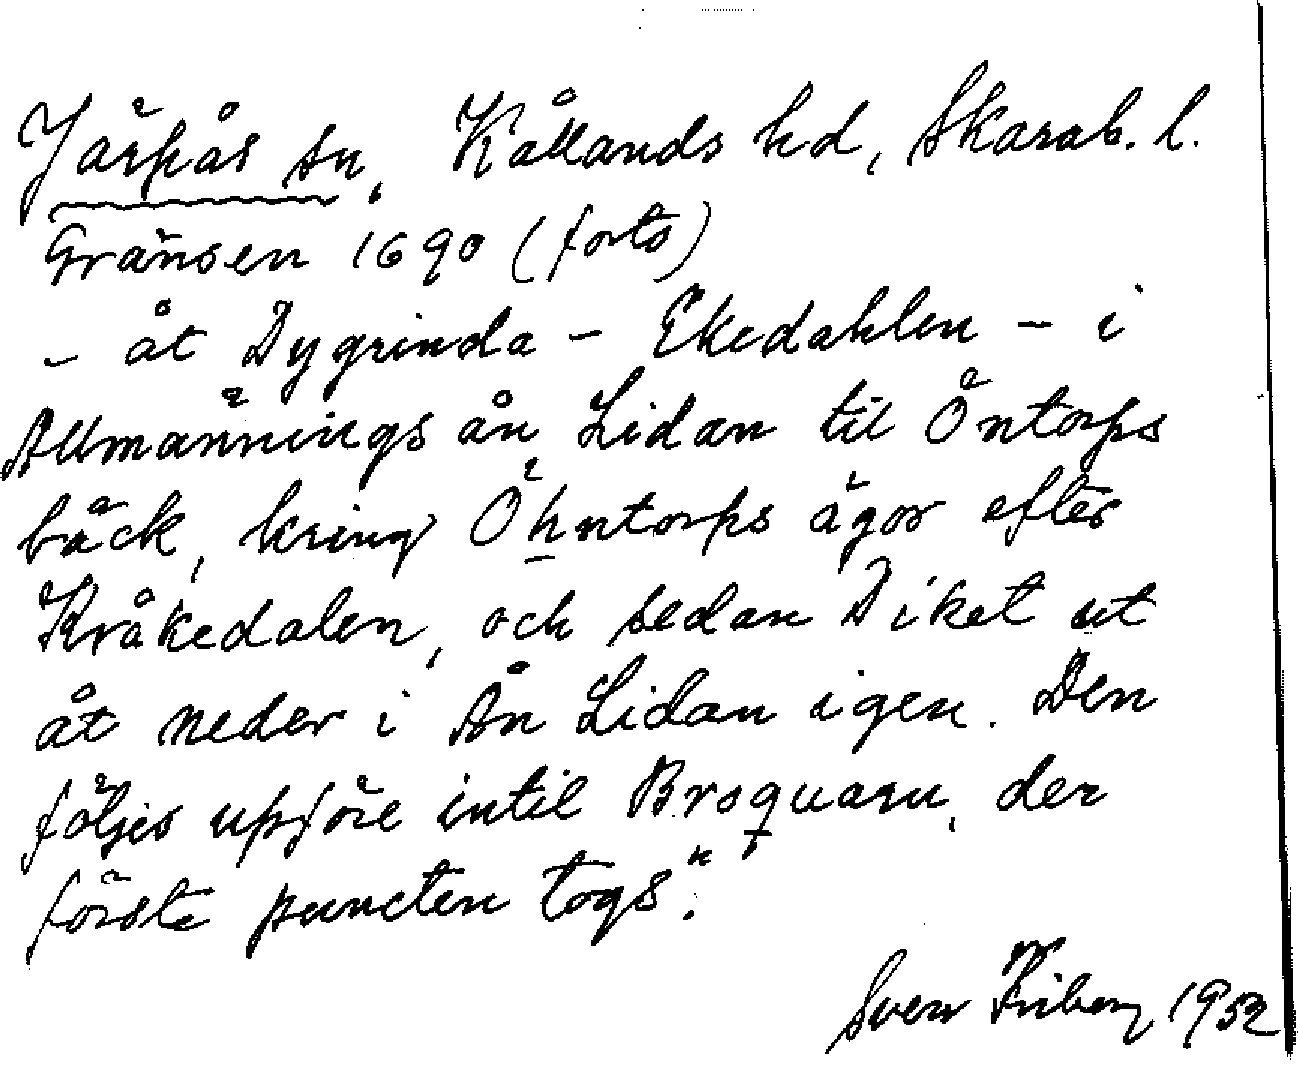 Järpås sn, Kållands hd, Skarab. l.
Gränsen 1690 (forts)
- åt Dygrinda - Ekedahlen - i
Allmännings ån Lidan til Öntorps
bäck, kring Öhntorps ägor efter
Kråkedalen, och sedan Diket ut
åt neder i Ån Lidan igen. Den
följes upföre intil Broquarn, der
förste puncten togs."
Sven Friberg 1952